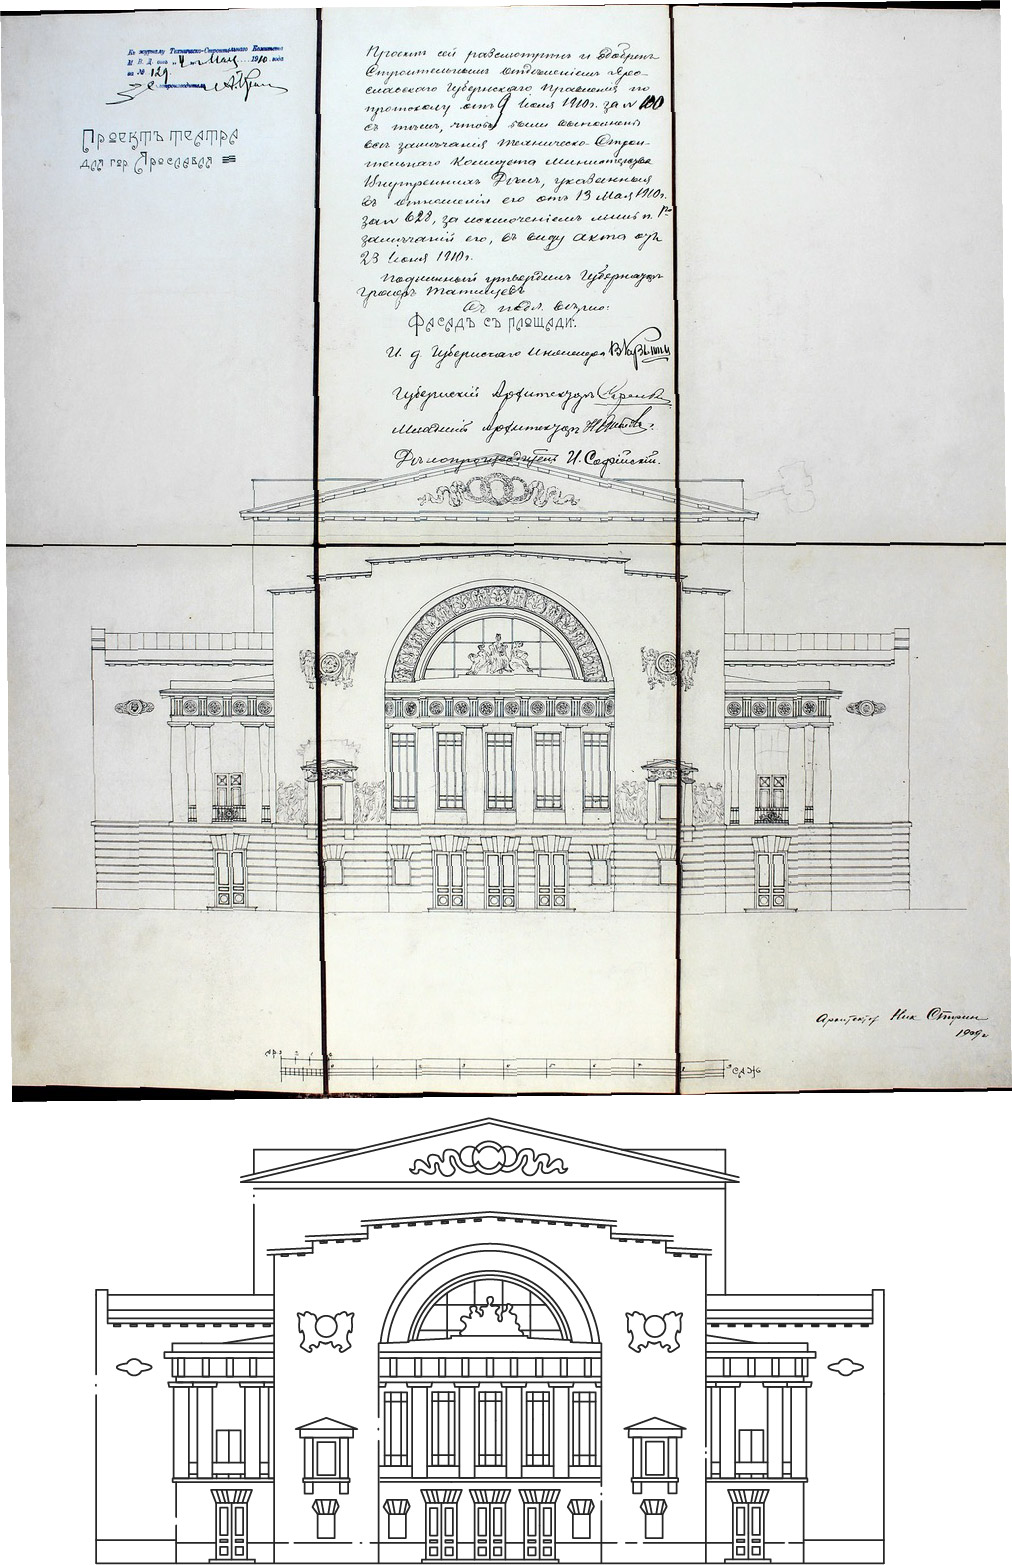 Къ журналу Техническо-Строительнаго Комитета
М. В. Д. отъ „4“ Мая 1910 года
за № 129
Проектъ театра
для гор. Ярославля
Проектъ сей разсмотренъ и одобренъ
Строительнымъ Отдѣленіемъ Яро-
славскаго Губернскаго Правленія по
протоколу отъ 9 Іюня 1910 г. за № 100
съ тѣмъ, чтобы были выполнены
всѣ замѣчанія Техническо-Строи-
тельнаго Комитета Министерства
Внутреннихъ Дѣлъ, указанныя
въ отношеніи его отъ 13 Мая 1910 г.
за № 628, за исключеніемъ лишь п. 1го
замѣчаній его, въ виду акта отъ
23 Іюня 1910 г.
Подлинный утвердилъ Губернаторъ
Графъ Татищевъ
Съ подл. вѣрно:
Фасадъ съ площади.
И. д. Губернскаго Инженера
Губернскій Архитекторъ
Младшій Архитекторъ
Дѣлопроизводитель И. Софійскій.
Архитекторъ Ник Спирин
1909 г
ар. 3 2 1 0 1 2 3 4 5 6 7 8 9 САЖ